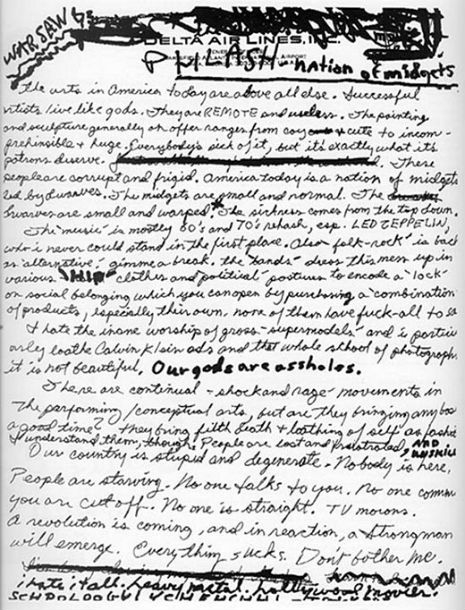 WARSAW
DELTA AIR LINES, INC.
GENERAL OFFICES AIRPORT
PULLASH nation of midgets
The arts in America today are above all else. Successful
artists live like gods. They are REMOTE and useless. The painting
and sculpture generally on offer ranges from coy & cute to incom-
prehinsible & huge. Everybody's sick of it, but it's exactly what its
patrons deserve. These
people are corrupt and frigid. America today is a nation of midgets
led by dwarves. The midgets are small and normal. The
dwarves are small and warped. The sickness comes from the top down.
The "music" is mostly 60's and 70's rehash, esp. LED ZEPPELIN,
who i never could stand in the first place. Also "folk-rock" is back
as "alternative," gimme a break. the "bands" dress this mess up in
various "HIP" clothes and "political" postures to encode a "lock"
on social belonging which you can open by purchasing a "combination"
of products, especially their own, none of them have fuck-all to sa
I hate the inane worship of gross "supermodels" and i particu
arly loathe Calvin Klein ads and that whole school of photograph
it is not beautiful. Our gods are assholes.
There are continual "shock and rage" movements in
the performing/conceptual arts, but are they bringing any bod
a good time? They bring filth death & loathing of self as fashio
I understand them, though. People are lost and frustrated, AND UNSKILL
Our country is stupid and degenerate. Nobody is here,
People are starving. No one talks to you. No one commu
you are cut off. No one is straight. TV morons.
A revolution is coming, and in reaction, a strong man
will emerge. Everything sucks. Don't bother me.
i hate it all. heavy metal. hollywood movies.
SCHPOLOOGY!